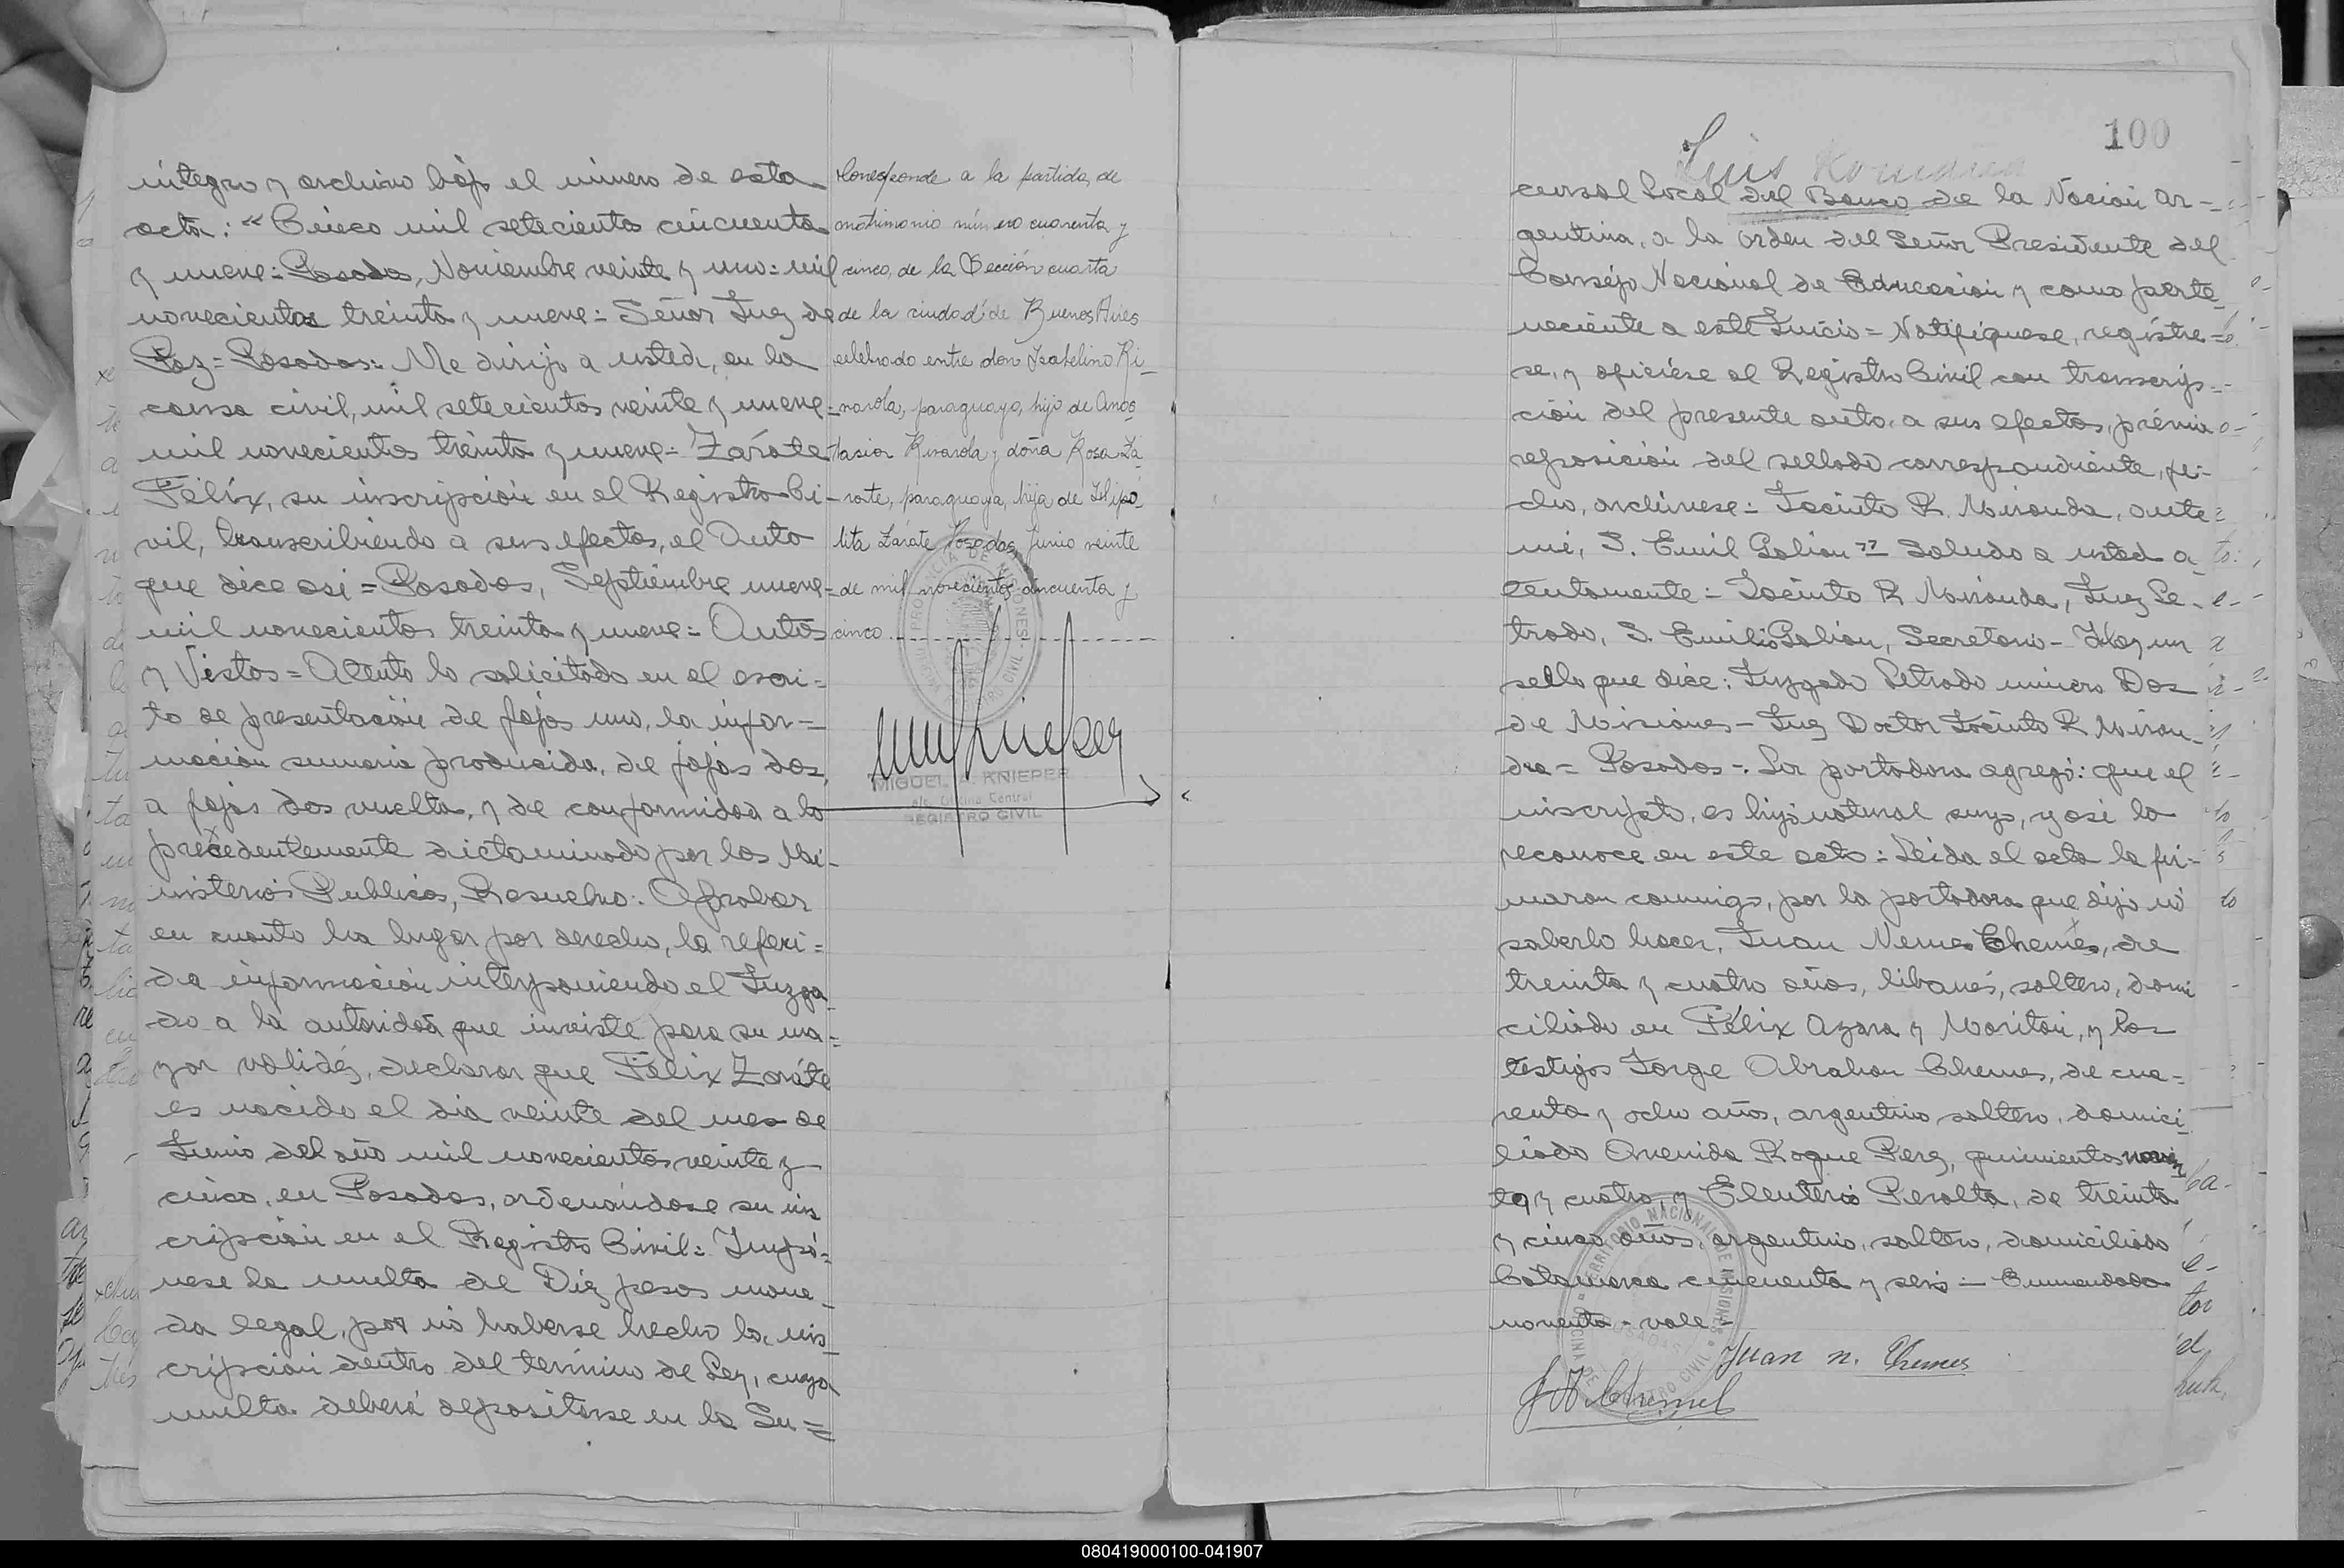 íntegro y archivo bajo el número de esta
acta: "Cinco mil setecientos cincuenta
y nueve = Posadas, Noviembre veinte y uno = mil
novecientos treinta y nueve = Señor Juez de
Paz = Posadas = Me dirijo a usted, en la
causa civil, mil setecientos veinte y nueve =
mil novecientos treinta y nueve = Zárate
Félix, su inscripción en el Registro Ci-
vil, transcribiendo a sus efectos, el Auto
que dice así = Posadas, Septiembre nueve =
mil novecientos treinta y nueve = Autos
y Vistos = Atento lo solicitado en el escri=
to de presentación de fojas uno, la infor=
mación sumaria producida, de fojas dos,
a fojas dos vuelta, y de conformidad a lo
precedentemente dictaminado por los Mi-
nisterios Publicos, Resuelvo: Aprobar
en cuanto ha lugar por derecho, la referi=
da información interponiendo el Juzga
do a la autoridad que inviste para su ma=
yor validés, declarar que Félix Zaráte
es nacido el dia veinte del mes de
Junio del año mil novecientos veinte y
cinco, en Posadas, ordenándose su ins
cripción en el Registro Civil = Impó=
nese la multa de Diez pesos mone-
da legal, por nó haberse hecho la ins
cripción dentro del termino de Ley, cuya
multa deberá depositarse en la Su=
Corresponde a la partida de
matrimonio número cuarenta y
cinco, de la Sección cuarta
de la ciudad de Buenos Aires
celebrado entre don Isabelino Ri-
varola, paraguayo, hijo de Anas
tasia Rivarola y doña Rosa Zá-
rate, paraguaya, hija de Hipó-
lita Zárate Posadas, Junio veinte
de mil novecientos cincuenta y
cinco
MIGUEL A. KNIEPER
Oficina Central
REGISTRO CIVIL
100
Luis
cursal Local del Banco de la Nación Ar-
gentina, a la orden del Señor Presidente del
Consejo Nacional de Educación y como perte
neciente a este Juicio = Notifíquese, regístre=
se, y ofíciese al Registro Civil con transcrip=
ción del presente auto, a sus efectos, prévia
reposición del sellado correspondiente, fe-
cho, archívese = Jacinto R. Miranda, ante
mí, S. Emil Galian" = Saludo a usted a
tentamente = Jacinto R Miranda, Juez Le-
trado, S. Emilio Galian, Secretario - Hay un
sello que dice: Juzgado Letrado número Dos
de Misiones - Juez Doctor Jacinto R Miran-
da = Posadas =. La portadora agregó: que el
inscripto, es hijo natural suyo, y así lo
reconoce en este acto = Leida el acta la fir=
maron conmigo, por la portadora que dijo nó
saberlo hacer, Juan Nemes Chemes, de
treinta y cuatro años, libanés, soltero, domi
ciliado en Félix Azara y Moritán, y los
testigos Jorge Abrahan Chemes, de cua=
renta y ocho años, argentino soltero, domici
liado Avenida Roque Perez, quinientos noven
ta y cuatro, y Eleuterio Peralta, de treinta
y cinco años, argentino, soltero, domiciliado
Catamarca cincuenta y seis = Enmendado
noventa = vale
Juan n. Chemes